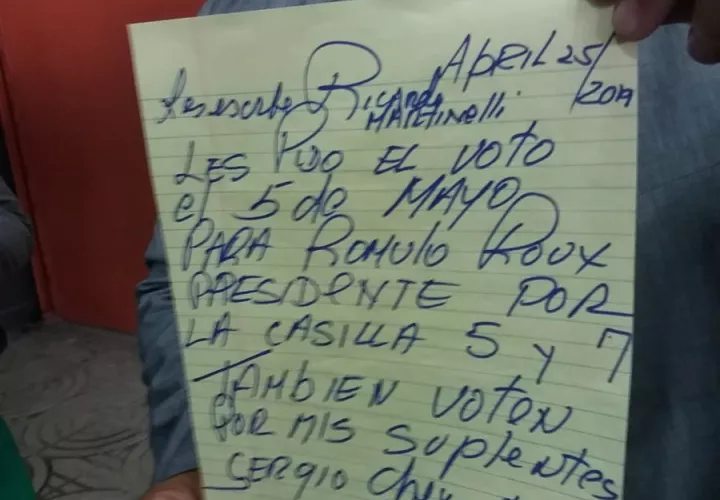 April 25/
2019
Les escribe Ricardo
MARtinelli
LES PIDO EL VOTO
el 5 de MAYO
PARA ROMULO ROUX
PRESIDENTE POR
LA CASILLA 5 y 7
TAMBIEN VOTEN
POR MIS SUPLENTES
SERGIO